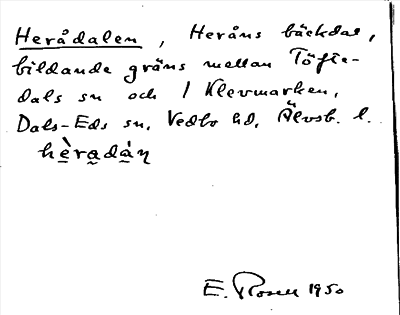 Herådalen, Heråns bäckdal,
bildande gräns mellan Töfte-
dals sn och / Klevmarken,
Dals-Eds sn, Vedbo hd, Älvsb. l.
hèradàn
E. Rosell 1950